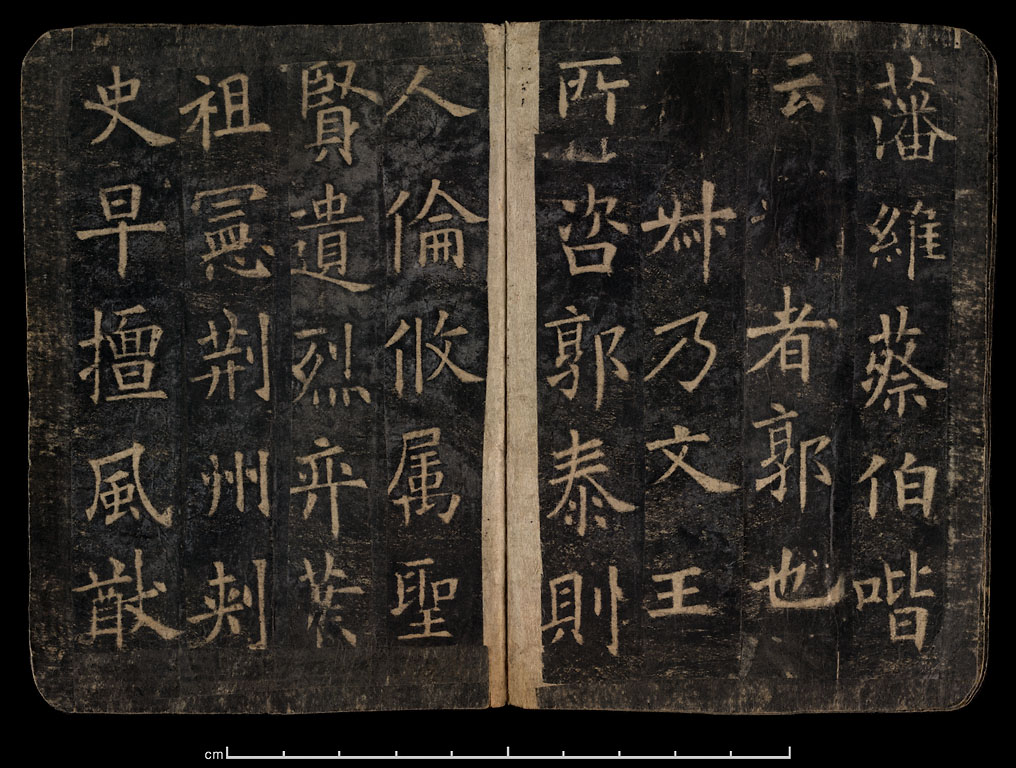 藩維蔡伯喈
云者郭也
𠦑乃文王
所咨郭泰則
人倫攸属聖
賢遺烈弈葉
祖憲荊州刺
史早擅風猷
cm